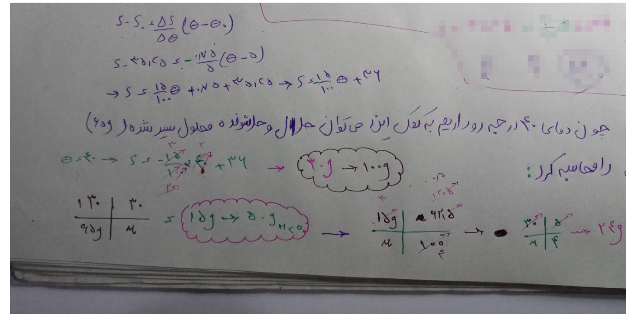 S-S₀=ΔS/Δθ(θ-θ₀)
S-۳۵٫۲۵=-۰٫۷۵/۵(θ-۵)
→ S=-۱۵/۱۰۰θ+۰٫۷۵+۳۵٫۲۵→S=-۱۵/۱۰۰θ+۳۶
چون دمای ۴۰ درجه رو داریم به کمک این می‌توان حلال و حل‌شونده محلول سیر شده (۶۵g)
را محاسبه کرد:
θ=۴۰ → S=-۱۵/۱۰۰×۴۰+۳۶ → ۳۰g → ۱۰۰g
۱۳۰ | ۳۰
۶۵g | x
= ۱۵g → ۵۰g H₂O →
۱۵g | ۶۲٫۵
x | ۱۰۰
→
۳۰ | ۵
x | ۴
→ ۲۴g